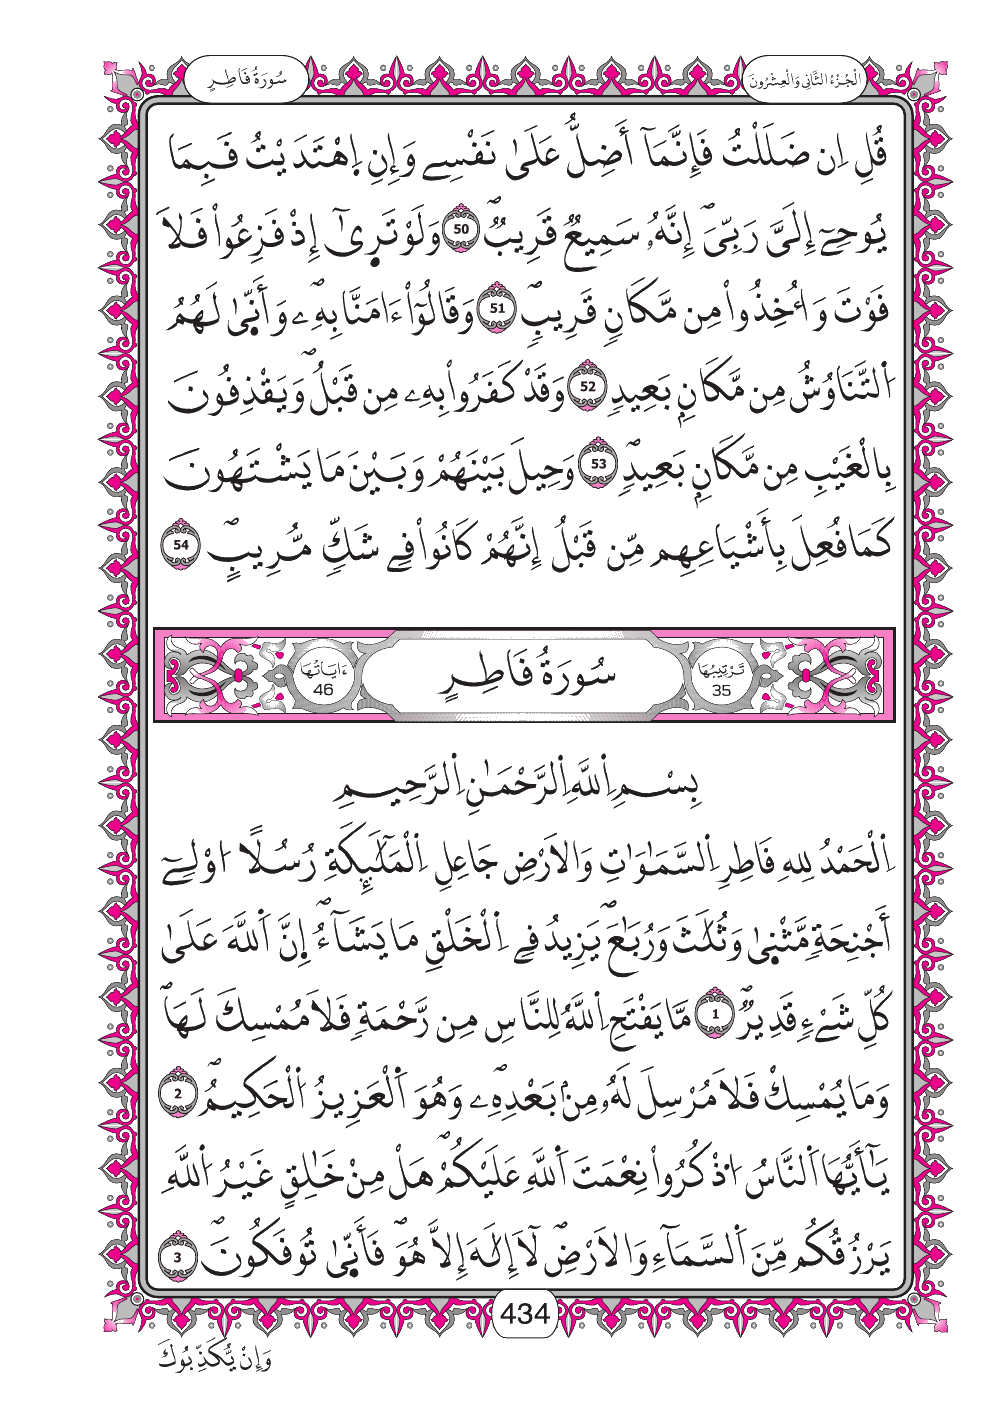 الْجُزْءُ الثَّانِي وَالْعِشْرُونَ
سُورَةُ فَاطِرٍ
قُلِ اِن ضَلَلْتُ فَإِنَّمَآ أَضِلُّ عَلَىٰ نَفْسِے وَإِنِ اِهْتَدَيْتُ فَبِمَا
يُوحِےٓ إِلَىَّ رَبِّىَۖ إِنَّهُۥ سَمِيعٌ قَرِيبٌۖ 50 وَلَوْ تَرٜىٰٓ إِذْ فَزِعُواْ فَلَا
فَوْتَ وَأُخِذُواْ مِن مَّكَانٍ قَرِيبٍۖ 51 وَقَالُوٓاْ ءَامَنَّا بِهِۦۖ وَأَنّٜىٰ لَهُمُ
اُلتَّنَاوُشُ مِن مَّكَانِۢ بَعِيدٍۖ 52 وَقَدْ كَفَرُواْ بِهِۦ مِن قَبْلُۖ وَيَقْذِفُونَ
بِالْغَيْبِ مِن مَّكَانِۢ بَعِيدٍۖ 53 وَحِيلَ بَيْنَهُمْ وَبَيْنَ مَا يَشْتَهُونَ
كَمَا فُعِلَ بِأَشْيَاعِهِم مِّن قَبْلُ إِنَّهُمْ كَانُواْ فِے شَكٍّ مُّرِيبٍۖ 54
تَرْتِيبُهَا 35
سُورَةُ فَاطِرٍ
ءَايَاتُهَا 46
بِسْمِ اِللَّهِ اِلرَّحْمَٰنِ اِلرَّحِيمِ
اِلْحَمْدُ لِلهِ فَاطِرِ اِلسَّمَٰوَٰتِ وَالَارْضِ جَاعِلِ اِلْمَلَٰٓئِكَةِ رُسُلًا اوْلِےٓ
أَجْنِحَةٍ مَّثْنٜىٰ وَثُلَٰثَ وَرُبَٰعَۖ يَزِيدُ فِے اِلْخَلْقِ مَا يَشَآءُۖ إِنَّ اَللَّهَ عَلَىٰ
كُلِّ شَےْءٍ قَدِيرٌۖ 1 مَّا يَفْتَحِ اِللَّهُ لِلنَّاسِ مِن رَّحْمَةٍ فَلَا مُمْسِكَ لَهَاۖ
وَمَا يُمْسِكْ فَلَا مُرْسِلَ لَهُۥ مِنۢ بَعْدِهِۦۖ وَهُوَ اَلْعَزِيزُ اُلْحَكِيمُۖ 2
يَٰٓأَيُّهَا اَلنَّاسُ اُذْكُرُواْ نِعْمَتَ اَللَّهِ عَلَيْكُمْۖ هَلْ مِنْ خَٰلِقٍ غَيْرُ اُللَّهِ
يَرْزُقُكُم مِّنَ اَلسَّمَآءِ وَالَارْضِۖ لَآ إِلَٰهَ إِلَّا هُوَۖ فَأَنّٜىٰ تُوفَكُونَۖ 3
434
وَإِنْ يُّكَذِّبُوكَ